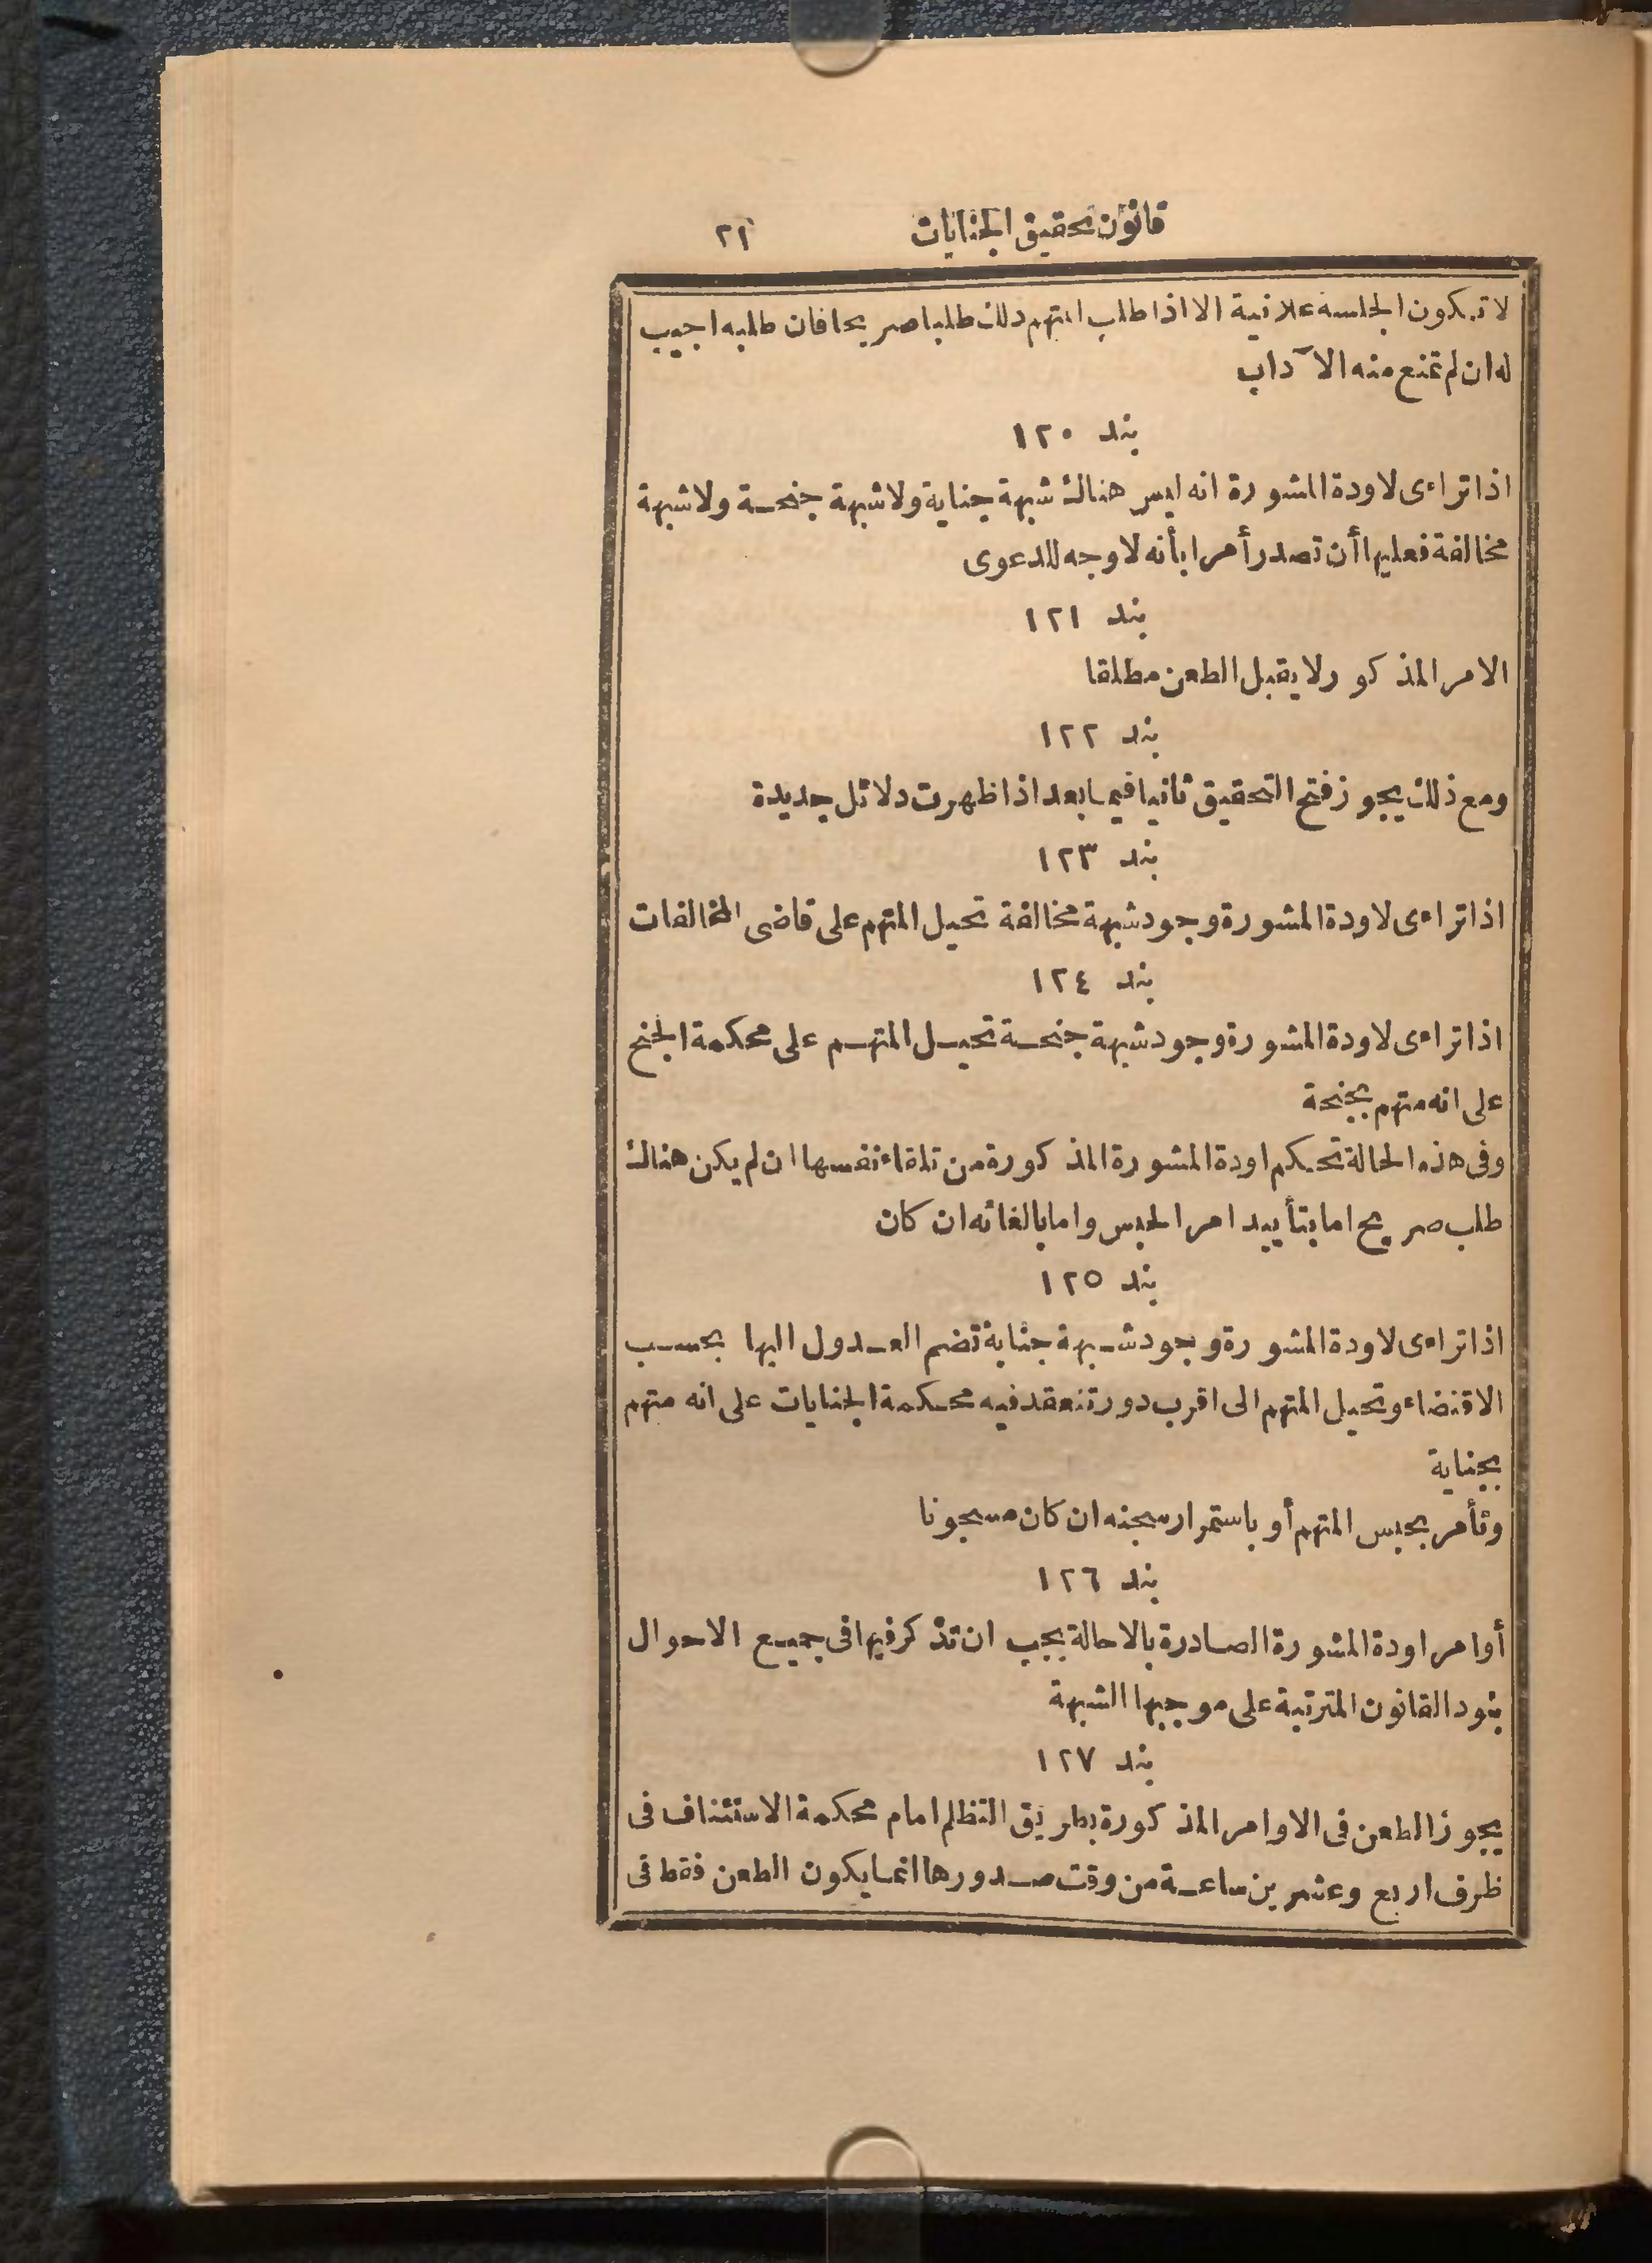 قانون تحقيق الجنايات ٢١
لا تكون الجلسة علانية الا اذا طلب المتهم ذلك طلبا صريحا فان طلبه اجيب
له ان لم تمنع منه الآداب
بند ١٢٠
اذا تراءى لاودة المشورة انه ليس هناك شبهة جناية ولا شبهة جنحة ولا شبهة
مخالفة فعليها أن تصدر أمرا بأنه لا وجه للدعوى
بند ١٢١
الامر المذكور لا يقبل الطعن مطلقا
بند ١٢٢
ومع ذلك يجوز فتح التحقيق ثانيا فيما بعد اذا ظهرت دلائل جديدة
بند ١٢٣
اذا تراءى لاودة المشورة وجود شبهة مخالفة تحيل المتهم على قاضى المخالفات
بند ١٢٤
اذا تراءى لاودة المشورة وجود شبهة جنحة تحيل المتهم على محكمة الجنح
على انه متهم بجنحة
وفى هذه الحالة تحكم اودة المشورة المذكورة من تلقاء نفسها ان لم يكن هناك
طلب صريح اما بتأييد امر الحبس واما بالغائه ان كان
بند ١٢٥
اذا تراءى لاودة المشورة وجود شبهة جناية تضم العدول اليها بحسب
الاقتضاء وتحيل المتهم الى اقرب دور تنعقد فيه محكمة الجنايات على انه متهم
بجناية
وتأمر بحبس المتهم أو باستمرار سجنه ان كان مسجونا
بند ١٢٦
أوامر اودة المشورة الصادرة بالاحالة يجب ان تذكر فيها فى جميع الاحوال
بنود القانون المترتبة على موجبها الشبهة
بند ١٢٧
يجوز الطعن فى الاوامر المذكورة بطريق التظلم امام محكمة الاستئناف فى
ظرف اربع وعشرين ساعة من وقت صدورها انما يكون الطعن فقط فى